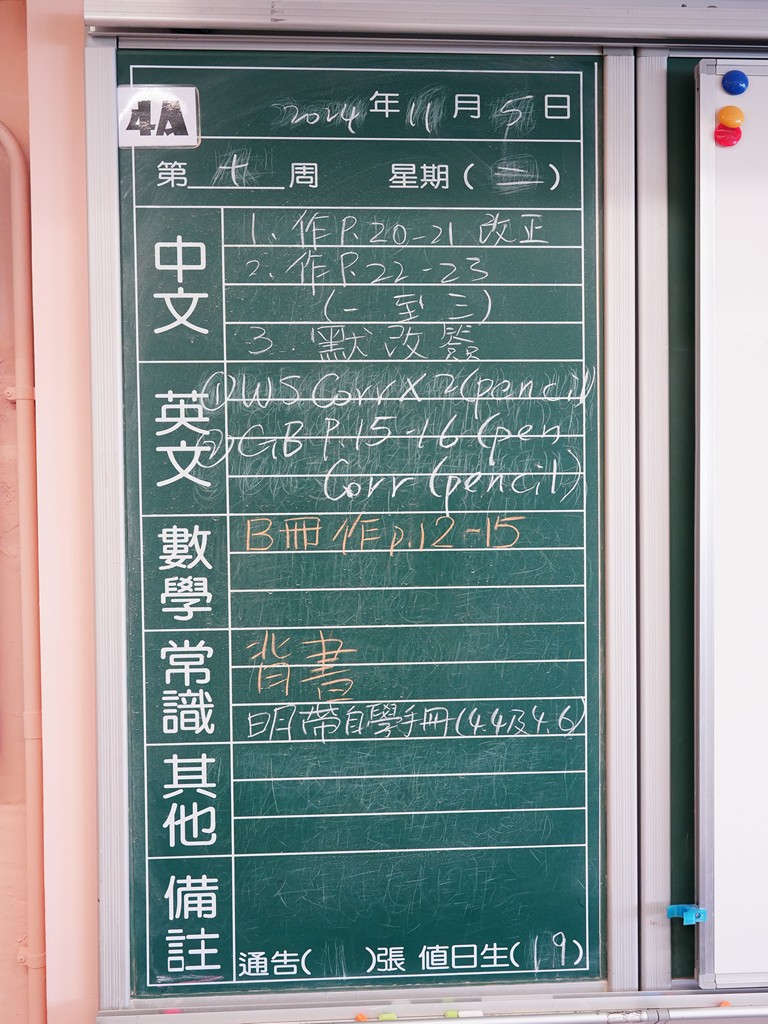 4A
2024年11月5日
第十周 星期(二)
中文
1. 作P.20-21 改正
2. 作P.22-23
(一至三)
3. 默改簽
英文
① WS Corr X 2 (pencil)
② GB P.15-16 (pen
Corr (pencil)
數學
B冊作p.12-15
常識
背書
明帶自學手冊(4.4及4.6)
其他
備註
通告( )張 值日生(19)